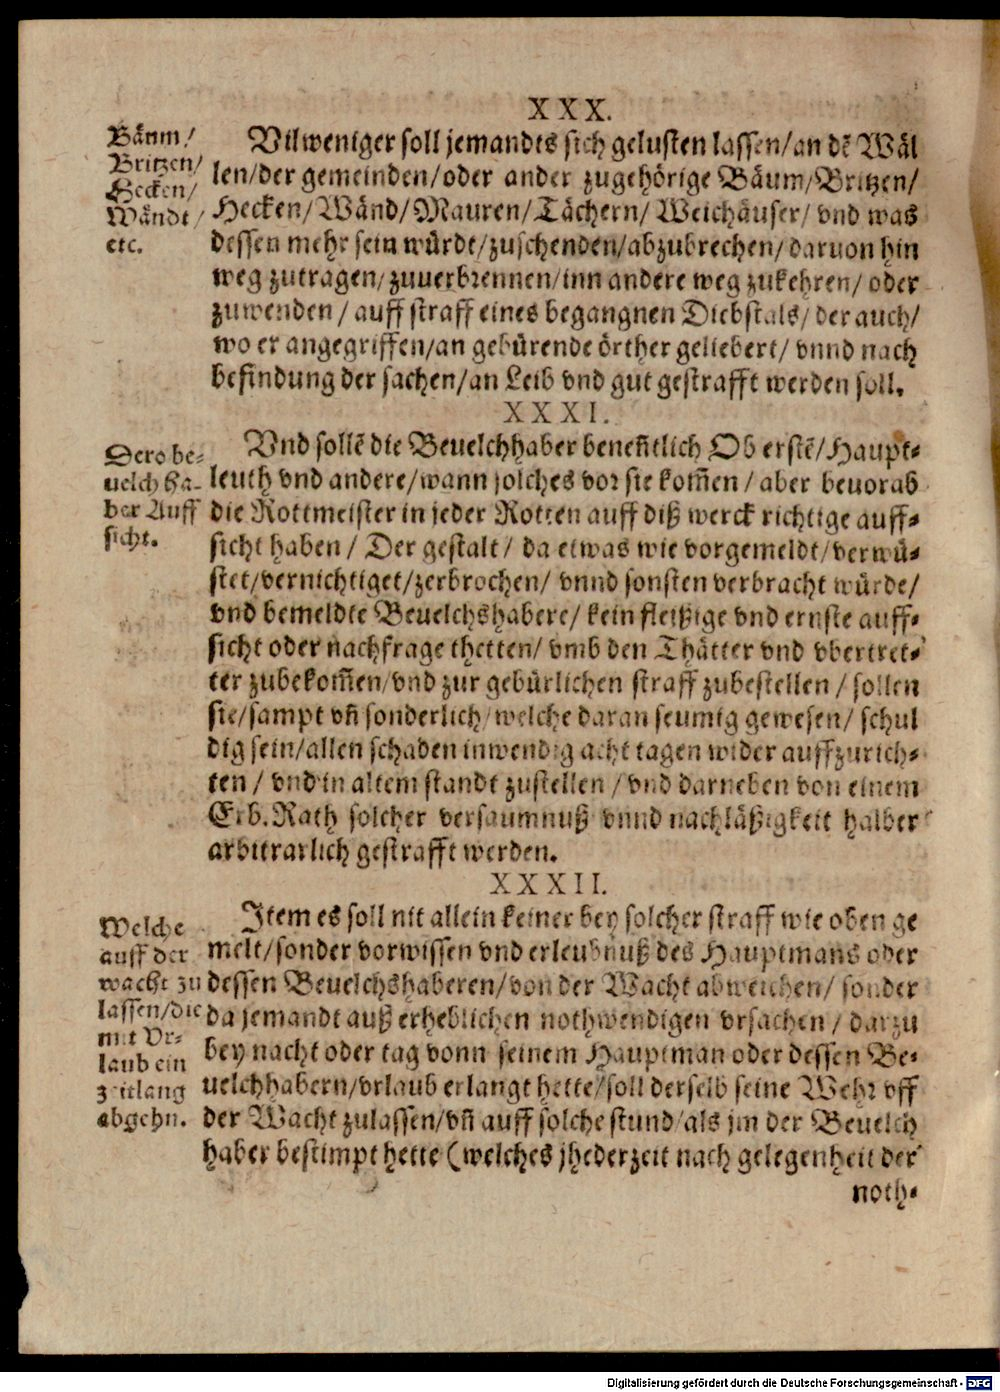 XXX.
Bäum/
Britzen/
Hecken/
Wändt/
etc.
Vilweniger soll jemandts sich gelusten lassen/an dẽ Wäl
len/der gemeinden/oder ander zugehörige Bäum/Britzen/
Hecken/Wänd/Mauren/Tächern/Weichäuser/vnd was
dessen mehr sein würdt/zuschenden/abzubrechen/daruon hin
weg zutragen/zuuerbrennen/inn andere weg zukehren/oder
zuwenden/auff straff eines begangnen Diebstals/der auch/
wo er angegriffen/an gebürende örther geliebert/vnnd nach
befindung der sachen/an Leib vnd gut gestrafft werden soll.
XXXI.
Dero be-
uelch ha-
ber Auff
sicht.
Vnd sollẽ die Beuelchhaber benentlich Ob erstẽ/Haupt-
leuth vnd andere/wann solches vor sie kom̃en/aber beuorab
die Rottmeister in jeder Rotten auff diß werck richtige auff-
sicht haben/Der gestalt/da etwas wie vorgemeldt/verwü-
stet/vernichtiget/zerbrochen/vnnd sonsten verbracht würde/
vnd bemeldte Beuelchshabere/kein fleißige vnd ernste auff-
sicht oder nachfrage thetten/vmb den Thätter vnd vbertret-
ter zubekom̃en/vnd zur gebürlichen straff zubestellen/sollen
sie/sampt vñ sonderlich/welche daran seumig gewesen/schul
dig sein/allen schaden inwendig acht tagen wider auffzurich-
ten/vnd in altem standt zustellen/vnd darneben von einem
Erb. Rath solcher versaumnuß vnnd nachläßigkeit halber
arbitrarlich gestrafft werden.
XXXII.
Welche
auff der
wacht zu
lassen/die
mit Vr-
laub ein
zeitlang
abgehn.
Item es soll nit allein keiner bey solcher straff wie oben ge
melt/sonder vorwissen vnd erleubnuß des Hauptmans oder
dessen Beuelchshaberen/von der Wacht abweichen/sonder
da jemandt auß erheblichen nothwendigen vrsachen/darzu
bey nacht oder tag vonn seinem Hauptman oder dessen Be-
uelchhabern/vrlaub erlangt hette/soll derselb seine Wehr vff
der Wacht zulassen/vñ auff solche stund/als jm der Beuelch
haber bestimpt hette (welches jhederzeit nach gelegenheit der
noth-
Digitalisierung gefördert durch die Deutsche Forschungsgemeinschaft - DFG